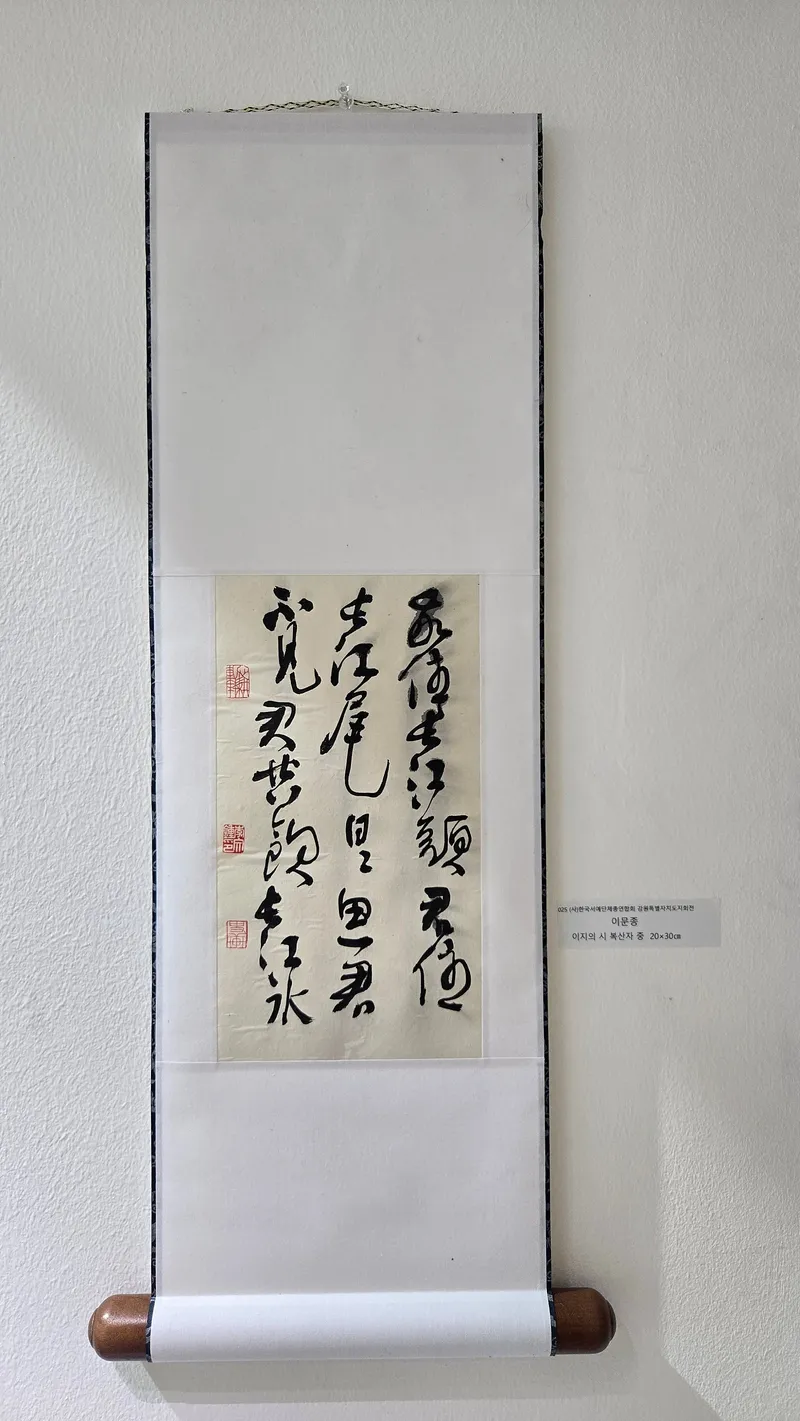 我住長江頭君住
長江尾日日思君
不見君共飲長江水
025 (사)한국서예단체총연합회 강원특별자치도지회전
이문종
이지의 시 복산자 중 20×30㎝